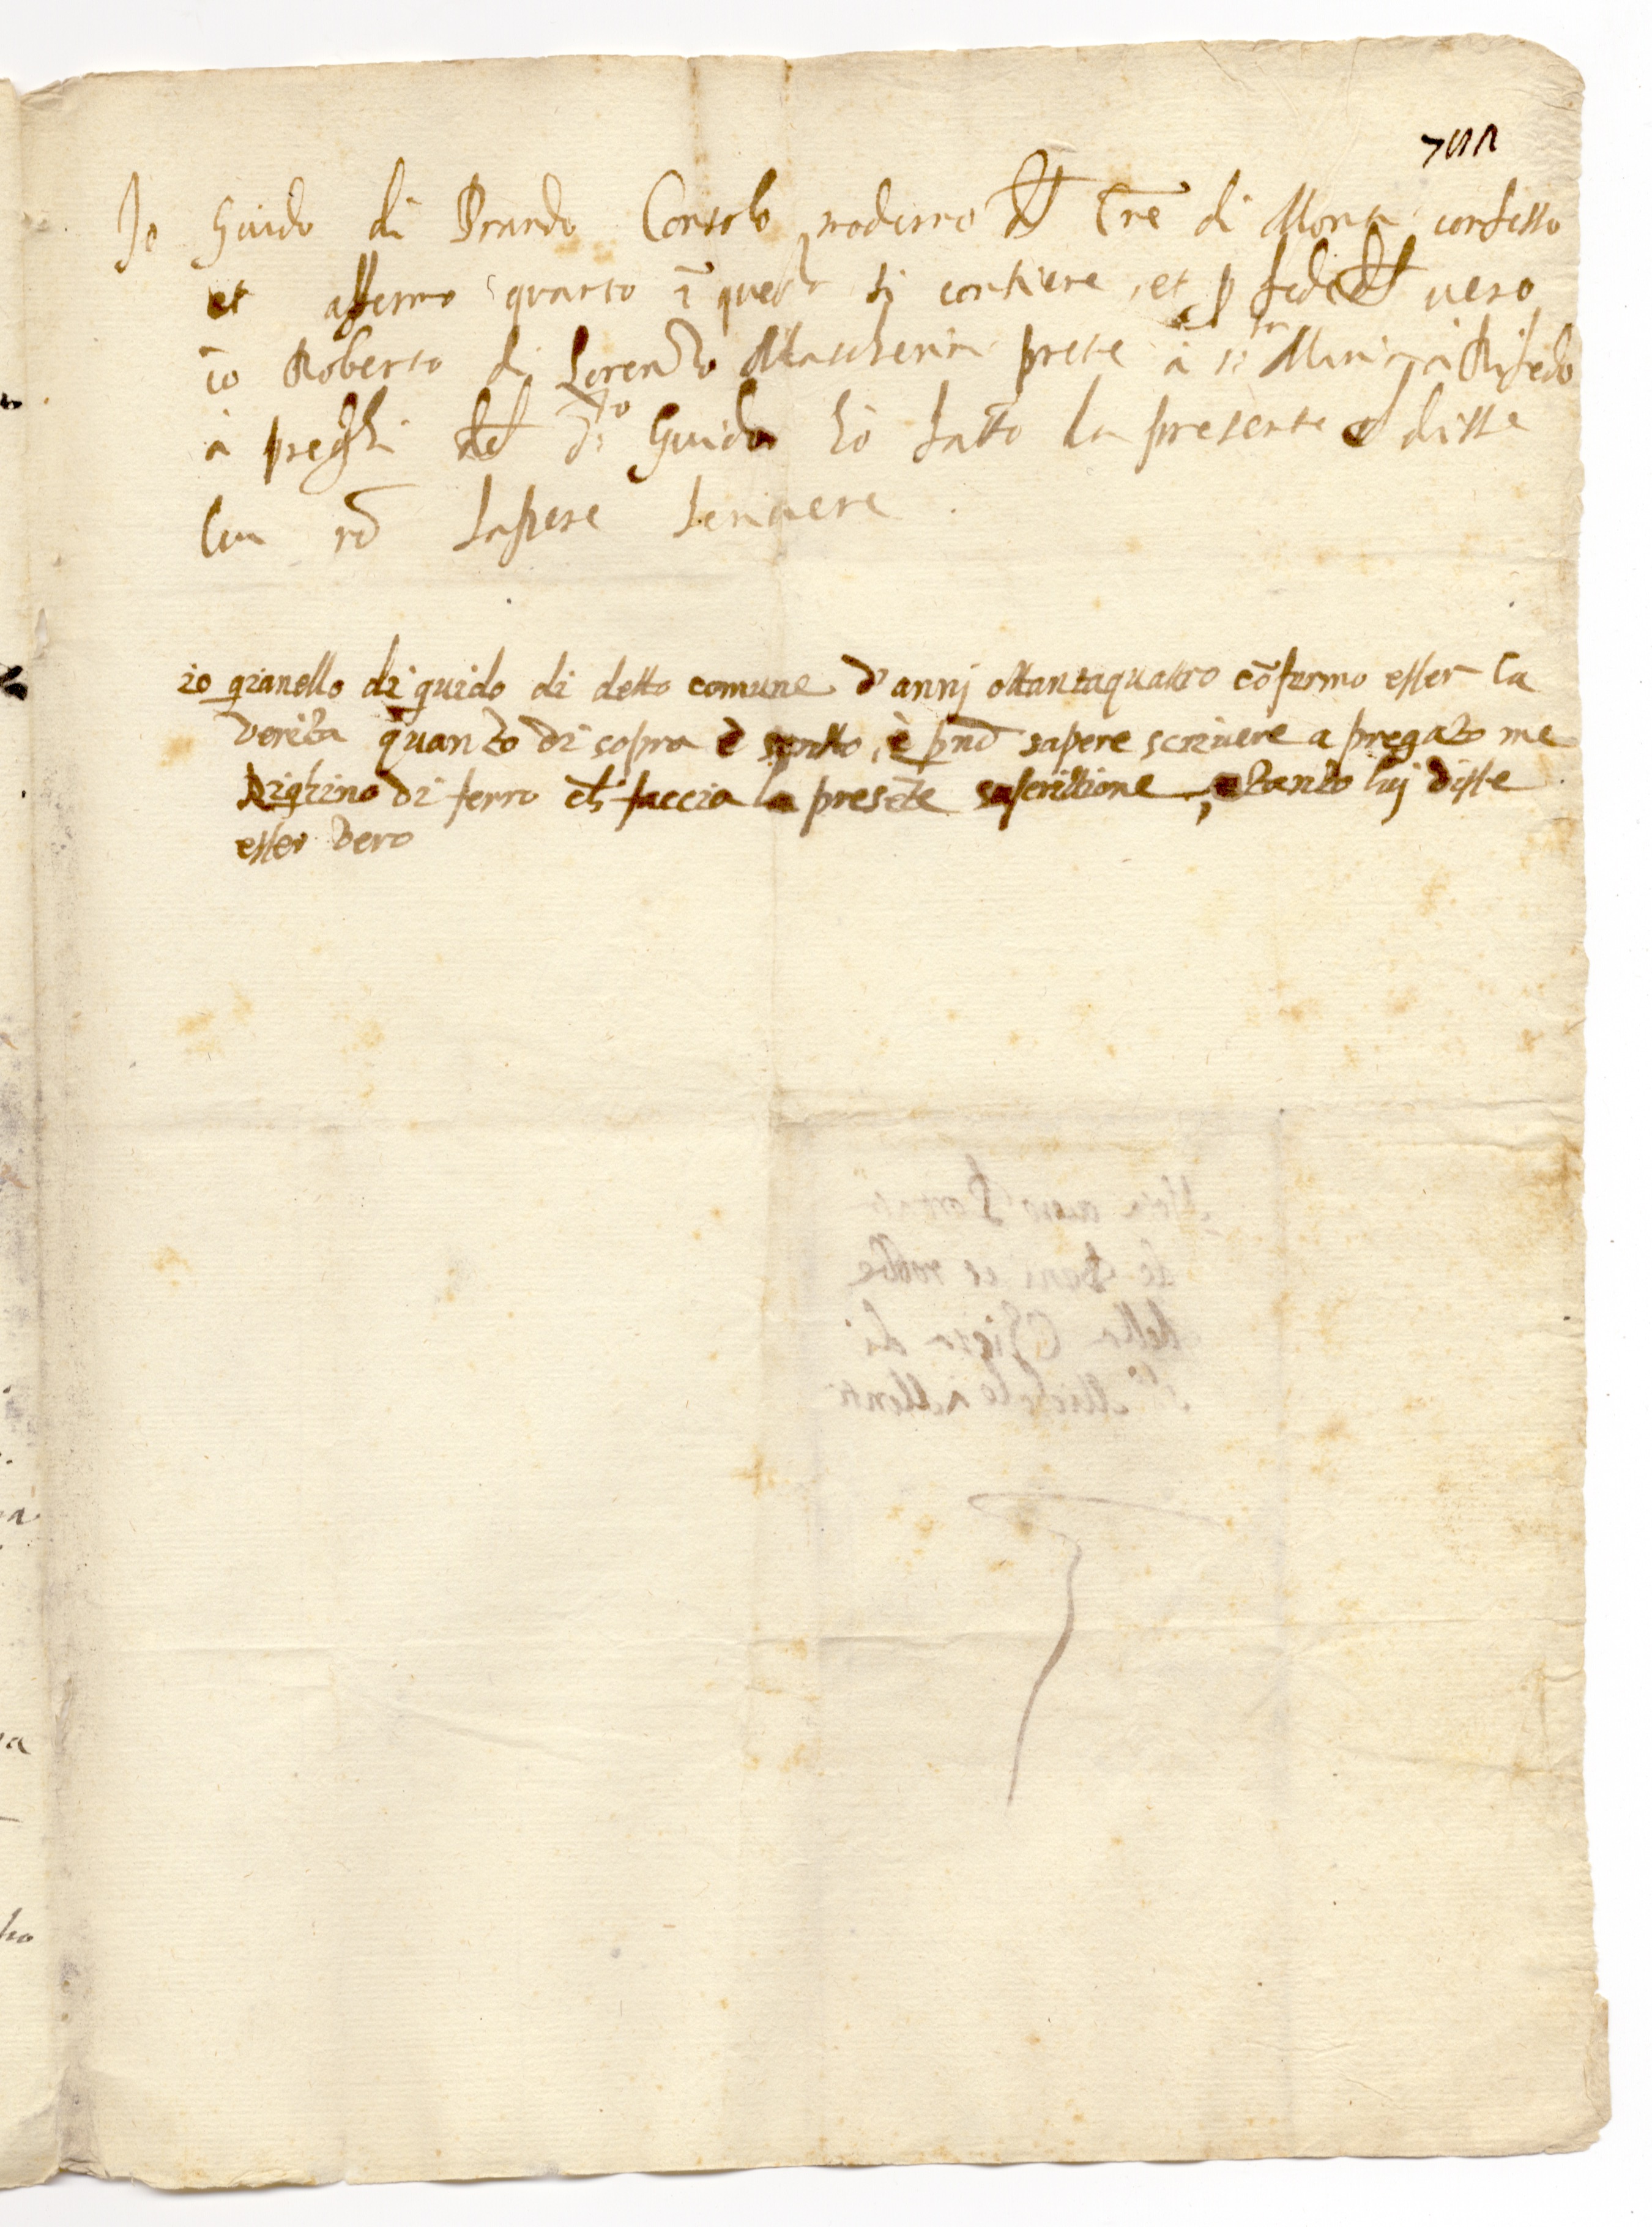 Io Guido di Brando Consolo moderno del Cne di Monti confesso
et affermo quanto ĩ questa si contiene, et ꝑ fede del vero
io Roberto di Lorenzo Mascherini prete à sta Maria à Rifredo
à preghi del dto Guido hò fatto la presente e disse
lui nõ sapere scrivere
io gianello di guido di detto comune d'annj ottantaquattro cõfermo esser la
verita quanto di sopra è scritto, è ꝑ nõ sapere scrivere a pregato me
Righino di ferro ch̃ faccia la presẽte soscrittione, e tanto luj disse
esser vero